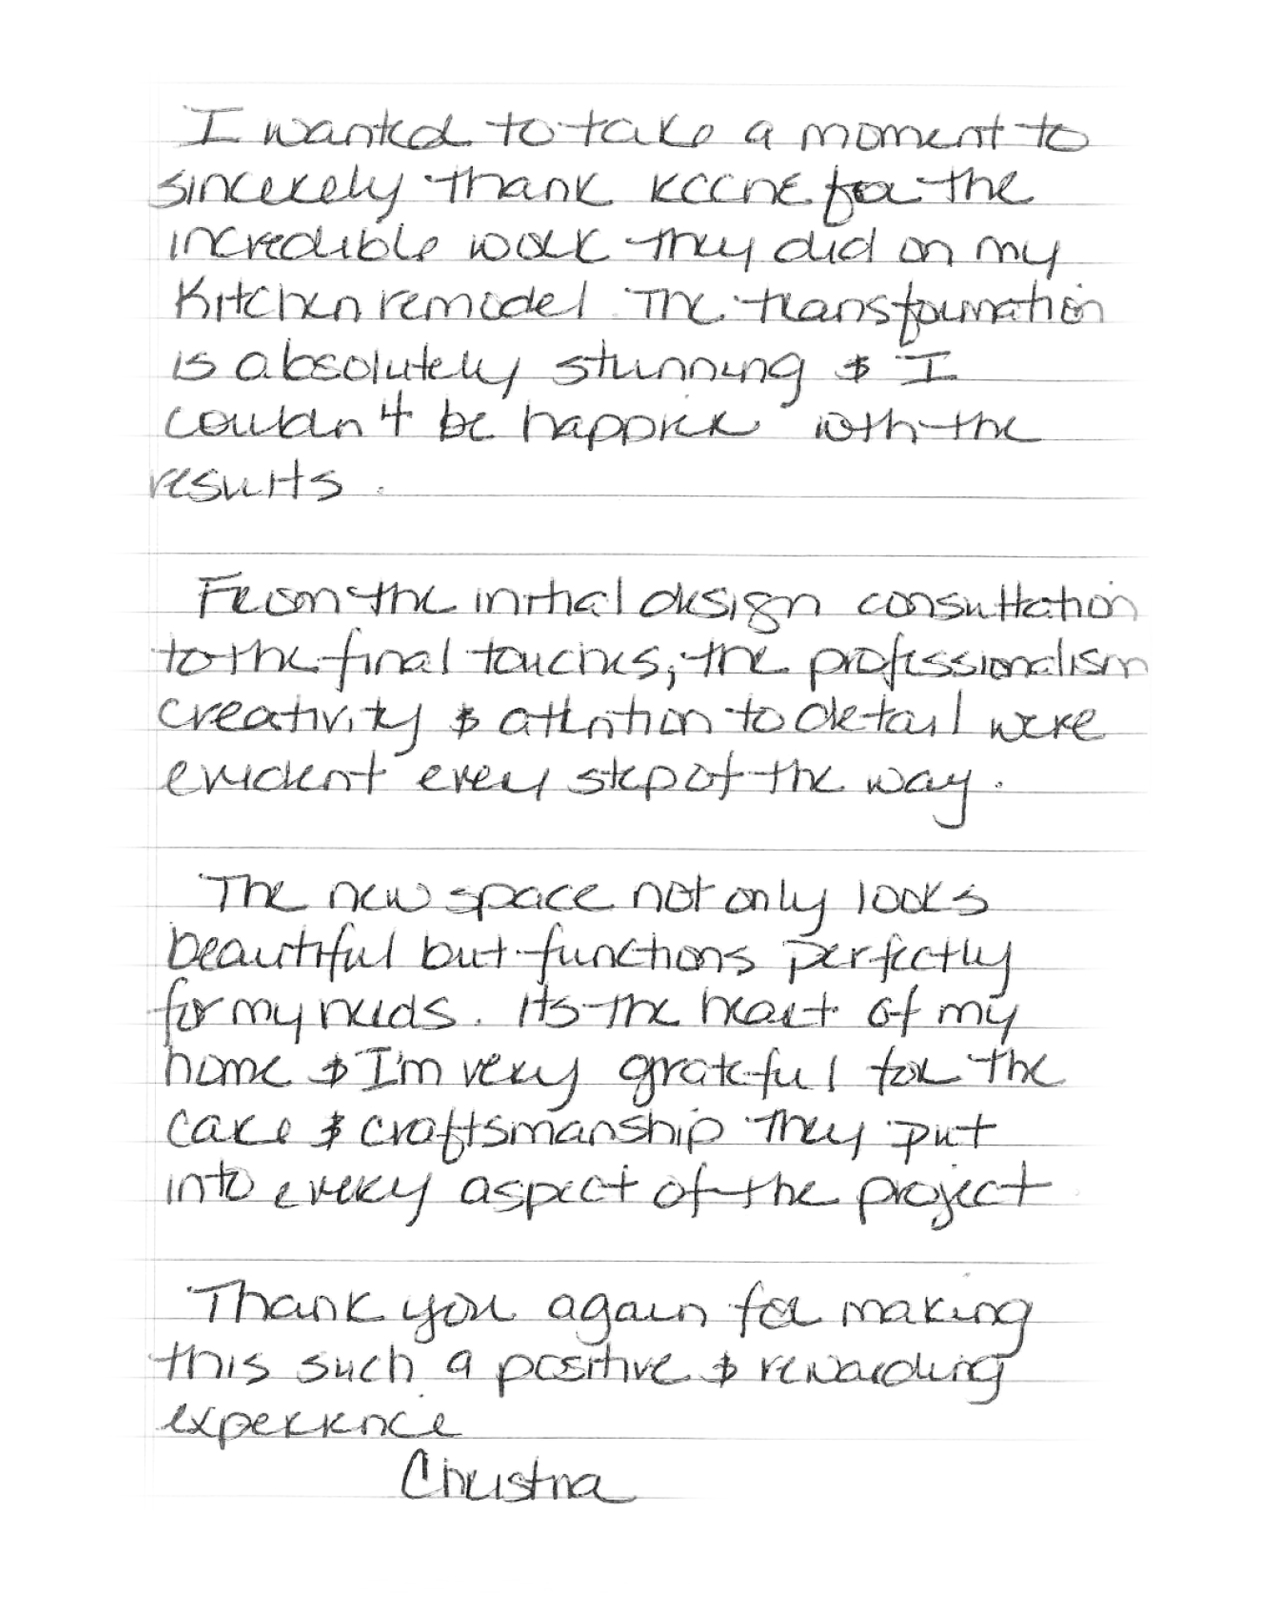 I wanted to take a moment to
sincerely thank KCCNE for the
incredible work they did on my
Kitchen remodel. The transformation
is absolutely stunning & I
couldn't be happier with the
results.
From the initial design consultation
to the final touches, the professionalism
creativity & attention to detail were
evident every step of the way.
The new space not only looks
beautiful but functions perfectly
for my needs. Its the heart of my
home & I'm very grateful for the
care & craftsmanship they put
into every aspect of the project
Thank you again for making
this such a positive & rewarding
experience
Christina